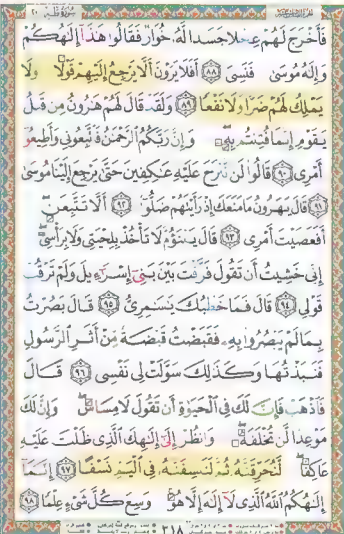 فَأَخْرَجَ لَهُمْ عِجْلًا جَسَدًا لَّهُ خُوَارٌ فَقَالُوا هَٰذَا إِلَٰهُكُمْ
وَإِلَٰهُ مُوسَىٰ فَنَسِيَ ﴿٨٨﴾ أَفَلَا يَرَوْنَ أَلَّا يَرْجِعُ إِلَيْهِمْ قَوْلًا وَلَا
يَمْلِكُ لَهُمْ ضَرًّا وَلَا نَفْعًا ﴿٨٩﴾ وَلَقَدْ قَالَ لَهُمْ هَٰرُونُ مِن قَبْلُ
يَٰقَوْمِ إِنَّمَا فُتِنتُم بِهِ وَإِنَّ رَبَّكُمُ الرَّحْمَٰنُ فَاتَّبِعُونِي وَأَطِيعُوا
أَمْرِي ﴿٩٠﴾ قَالُوا لَن نَّبْرَحَ عَلَيْهِ عَٰكِفِينَ حَتَّىٰ يَرْجِعَ إِلَيْنَا مُوسَىٰ
﴿٩١﴾ قَالَ يَٰهَٰرُونُ مَا مَنَعَكَ إِذْ رَأَيْتَهُمْ ضَلُّوا ﴿٩٢﴾ أَلَّا تَتَّبِعَنِ
أَفَعَصَيْتَ أَمْرِي ﴿٩٣﴾ قَالَ يَبْنَؤُمَّ لَا تَأْخُذْ بِلِحْيَتِي وَلَا بِرَأْسِي
إِنِّي خَشِيتُ أَن تَقُولَ فَرَّقْتَ بَيْنَ بَنِي إِسْرَٰءِيلَ وَلَمْ تَرْقُبْ
قَوْلِي ﴿٩٤﴾ قَالَ فَمَا خَطْبُكَ يَٰسَٰمِرِيُّ ﴿٩٥﴾ قَالَ بَصُرْتُ
بِمَا لَمْ يَبْصُرُوا بِهِ فَقَبَضْتُ قَبْضَةً مِّنْ أَثَرِ الرَّسُولِ
فَنَبَذْتُهَا وَكَذَٰلِكَ سَوَّلَتْ لِي نَفْسِي ﴿٩٦﴾ قَالَ
فَاذْهَبْ فَإِنَّ لَكَ فِي الْحَيَوٰةِ أَن تَقُولَ لَا مِسَاسَ وَإِنَّ لَكَ
مَوْعِدًا لَّن تُخْلَفَهُ وَانظُرْ إِلَىٰ إِلَٰهِكَ الَّذِي ظَلْتَ عَلَيْهِ
عَاكِفًا لَّنُحَرِّقَنَّهُ ثُمَّ لَنَنسِفَنَّهُ فِي الْيَمِّ نَسْفًا ﴿٩٧﴾ إِنَّمَا
إِلَٰهُكُمُ اللَّهُ الَّذِي لَا إِلَٰهَ إِلَّا هُوَ وَسِعَ كُلَّ شَيْءٍ عِلْمًا ﴿٩٨﴾
٣١٨